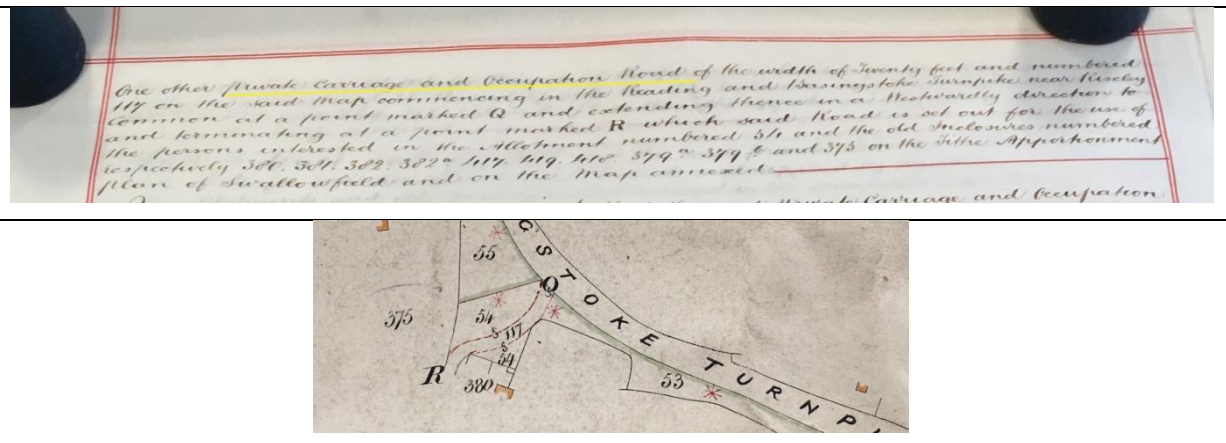 One other Private Carriage and Occupation Road of the width of Twenty feet and numbered
117 on the said Map commencing in the Reading and Basingstoke Turnpike near Riseley
Common at a point marked Q and extending thence in a Westwardly direction to
and terminating at a point marked R which said Road is set out for the use of
the persons interested in the Allotment numbered 54 and the old Inclosures numbered
respectively 380. 381. 382. 382a 417. 419. 418. 379a 379b and 375 on the Tithe Apportionment
plan of Swallowfield and on the Map annexed
Private Carriage and Occupation
GSTOKE TURNPI
55
Q
375
54
S 117
S
54
R
380
53